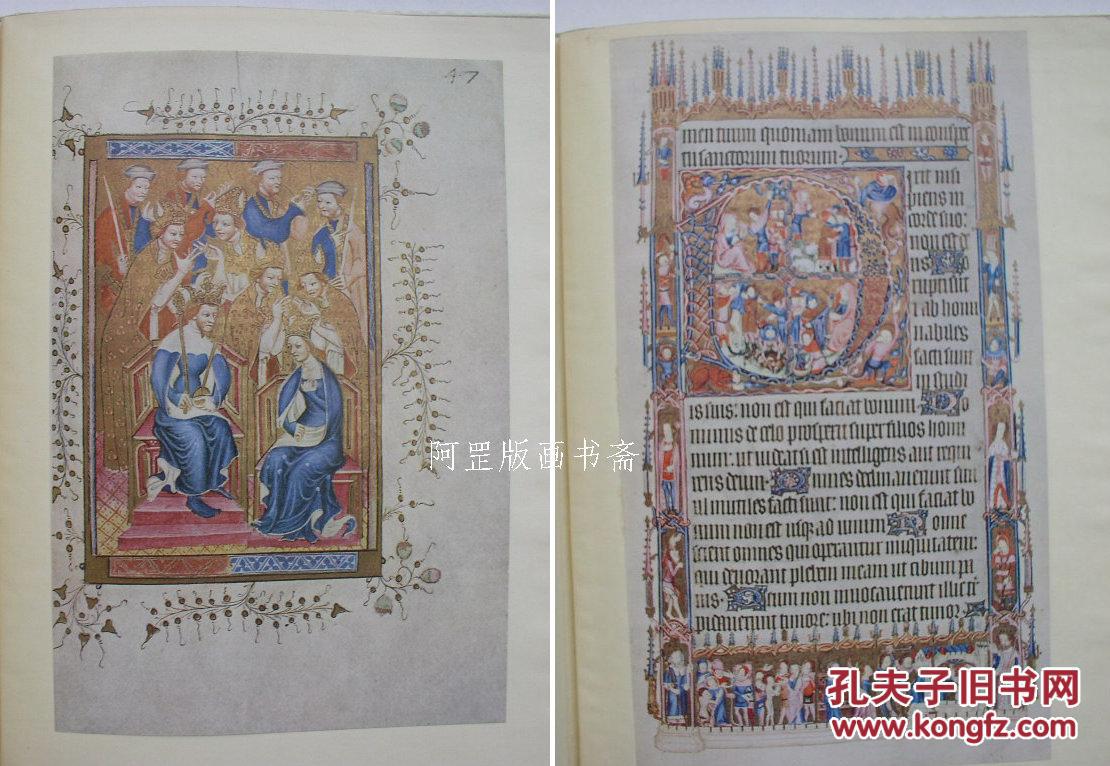 47
men tuum quoniam bonum est in conspec
tu sanctorum tuorum
Dixit insi
piens in
corde suo
non est de
us Co
rupti sunt
et abhomi
nabiles
facti sunt
in studi
is suis: non est qui faciat bonum Do
minus de celo prospexit super filios homi
num: ut videat si est intelligens aut requi
rens deum Omnes declinaverunt sim
ul inutiles facti sunt: non est qui faciat bo
num non est usq; ad unum Nonne
scient omnes qui operantur iniquitatem:
qui devorant plebem meam ut cibum pa
nis Deum non invocaverunt illic
trepidaverunt timore: ubi non erat timor
阿罡版画书斋
孔夫子旧书网
www.kongfz.com